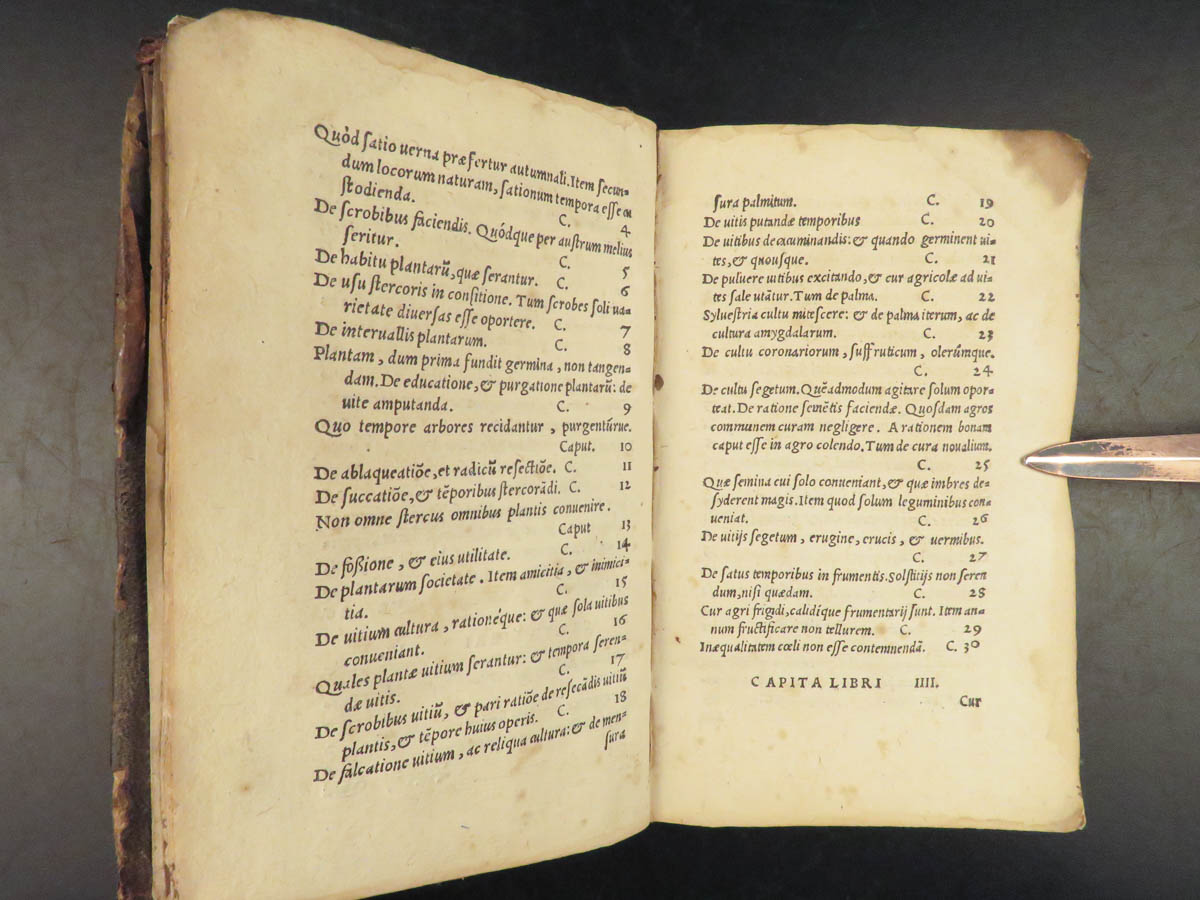 Quòd ſatio uerna præfertur autumnali. Item ſecun-
dum locorum naturam, ſationum tempora eſſe cu
ſtodienda. C. 4
De ſcrobibus faciendis. Quódque per auſtrum melius
ſeritur. C. 5
De habitu plantarũ, quæ ſerantur. C. 6
De uſu ſtercoris in conſitione. Tum ſcrobes ſoli ua-
rietate diuerſas eſſe oportere. C. 7
De interuallis plantarum. C. 8
Plantam, dum prima fundit germina, non tangen-
dam. De educatione, & purgatione plantarũ: de
uite amputanda. C. 9
Quo tempore arbores recidantur, purgentúrue.
Caput. 10
De ablaqueatiõe, et radicũ reſectiõe. C. 11
De ſuccatiõe, & tẽporibus ſtercorãdi. C. 12
Non omne ſtercus omnibus plantis conuenire.
Caput 13
De foßione, & eius utilitate. C. 14
De plantarum ſocietate. Item amicitia, & inimici-
tia. C. 15
De uitium cultura, rationéque: & quæ ſola uitibus
conueniant. C. 16
Quales plantæ uitium ſerantur: & tempora ſeren-
dæ uitis. C. 17
De ſcrobibus uitiũ, & pari ratiõe de reſecãdis uitiũ
plantis, & tẽpore huius operis. C. 18
De falcatione uitium, ac reliqua cultura: & de men-
ſura
ſura palmitum. C. 19
De uitis putandæ temporibus C. 20
De uitibus deacuminandis: & quando germinent ui-
tes, & quouſque. C. 21
De puluere uitibus excitando, & cur agricolæ ad ui-
tes ſale utãtur. Tum de palma. C. 22
Sylueſtria cultu miteſcere: & de palma iterum, ac de
cultura amygdalarum. C. 23
De cultu coronariorum, ſuffruticum, olerúmque.
C. 24
De cultu ſegetum. Quẽadmodum agitare ſolum opor-
teat. De ratione ſemẽtis faciendæ. Quoſdam agros
communem curam negligere. Arationem bonam
caput eſſe in agro colendo. Tum de cura noualium.
C. 25
Quæ ſemina cui ſolo conueniant, & quæ imbres de-
ſyderent magis. Item quod ſolum leguminibus con-
ueniat. C. 26
De uitijs ſegetum, erugine, crucis, & uermibus.
C. 27
De ſatus temporibus in frumentis. Solſtitijs non ſeren
dum, niſi quædam. C. 28
Cur agri frigidi, calidique frumentarij ſunt. Item an-
num fructificare non tellurem. C. 29
Inæqualitatem cœli non eſſe contemnendã. C. 30
CAPITA LIBRI IIII.
Cur